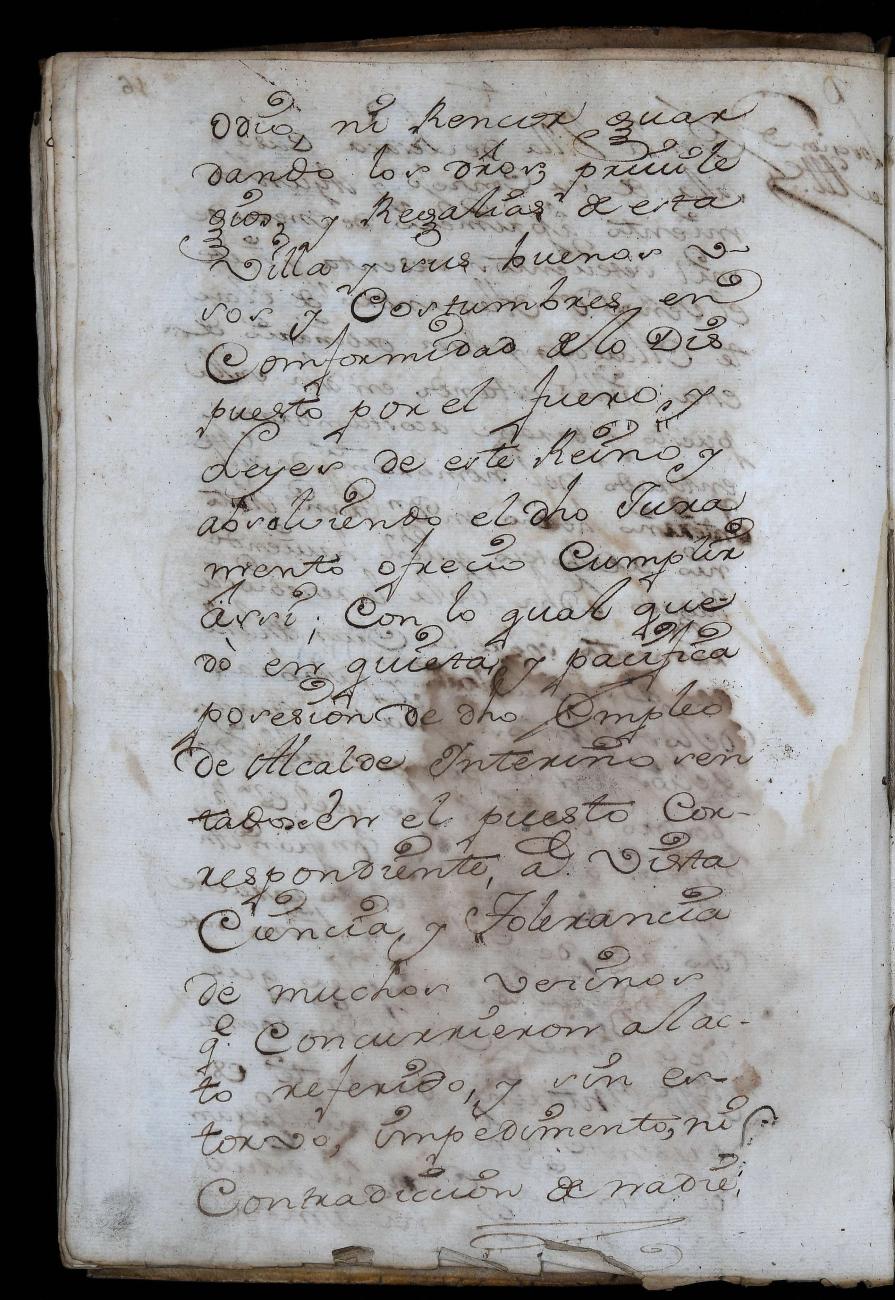 Odio, ni Rencor guar
dando los dros, privile
gios, y Regalias de esta
Villa y sus buenos v-
sos y Costumbres, en
Comformidad de lo Dis
puesto por el fuero, y
Leyes de este Reino, y
absolviendo el dho Jura
mento ofrecio Cumplir
assi; Con lo qual que-
dò en quieta, y pacifica
posesion de dho Empleo
de Alcalde Interino sen
tadose en el puesto Cor-
respondiente, à Vista
Ciencia, y Tolerancia
de muchos vesinos
q.e Concurrieron al ac-
to referido, y sin es-
torvo, impedimento, ni
Contradiccion de nadie.